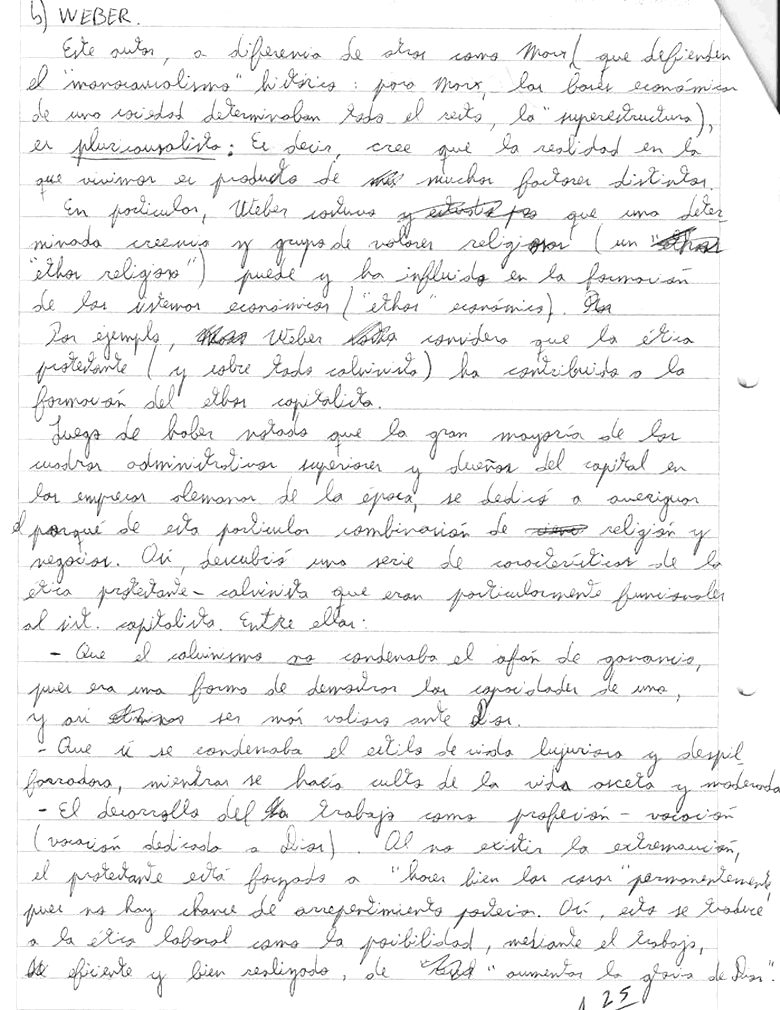 b) WEBER.
Este autor, a diferencia de otros como Marx (que defienden
el "monocausalismo" histórico: para Marx, las bases económicas
de una sociedad determinaban todo el resto, la "superestructura"),
es pluricausalista: Es decir, cree que la realidad en la
que vivimos es producto de muchos factores distintos.
En particular, Weber sostuvo que una deter-
minada creencia y grupo de valores religiosos (un
"ethos religioso") puede y ha influido en la formación
de los sistemas económicos ("ethos" económico).
Por ejemplo, Weber considera que la ética
protestante (y sobre todo calvinista) ha contribuido a la
formación del ethos capitalista.
Luego de haber notado que la gran mayoría de los
cuadros administrativos superiores y dueños del capital en
las empresas alemanas de la época, se dedicó a averiguar
el porqué de esta particular combinación de religión y
negocios. Así, descubrió una serie de características de la
ética protestante-calvinista que eran particularmente funcionales
al sist. capitalista. Entre ellas:
- Que el calvinismo no condenaba el afán de ganancia,
pues era una forma de demostrar las capacidades de uno,
y así ser más valioso ante Dios.
- Que sí se condenaba el estilo de vida lujurioso y despil
farradora, mientras se hacía culto de la vida asceta y moderada
- El desarrollo del trabajo como profesión - vocación
(vocación dedicada a Dios). Al no existir la extremaunción,
el protestante está forzado a "hacer bien las cosas" permanentemente,
pues no hay chance de arrepentimiento posterior. Así, esto se traduce
a la ética laboral como la posibilidad, mediante el trabajo,
eficiente y bien realizado, de "aumentar la gloria de Dios".
1 25